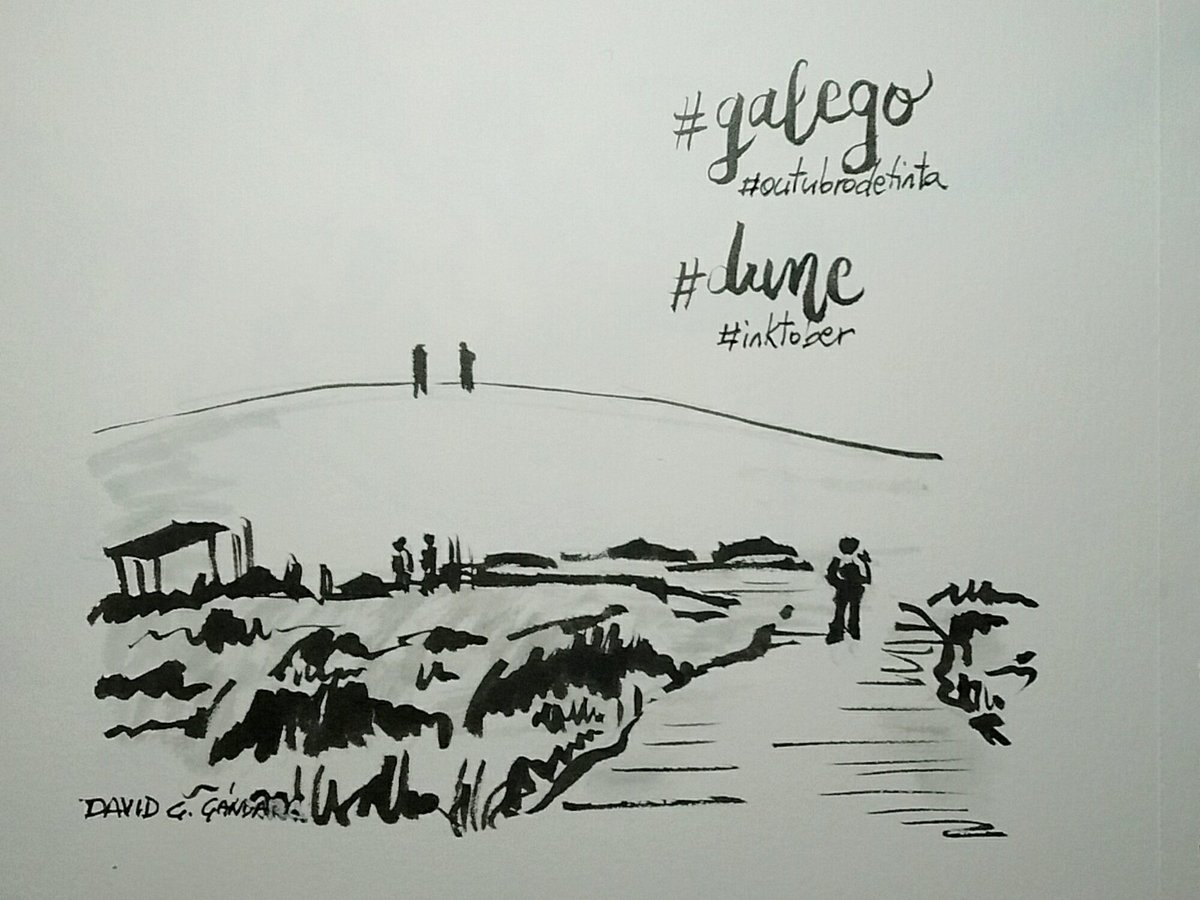 #galego
#outubrodetinta
#dune
#inktober
DAVID G. GÁNDARA